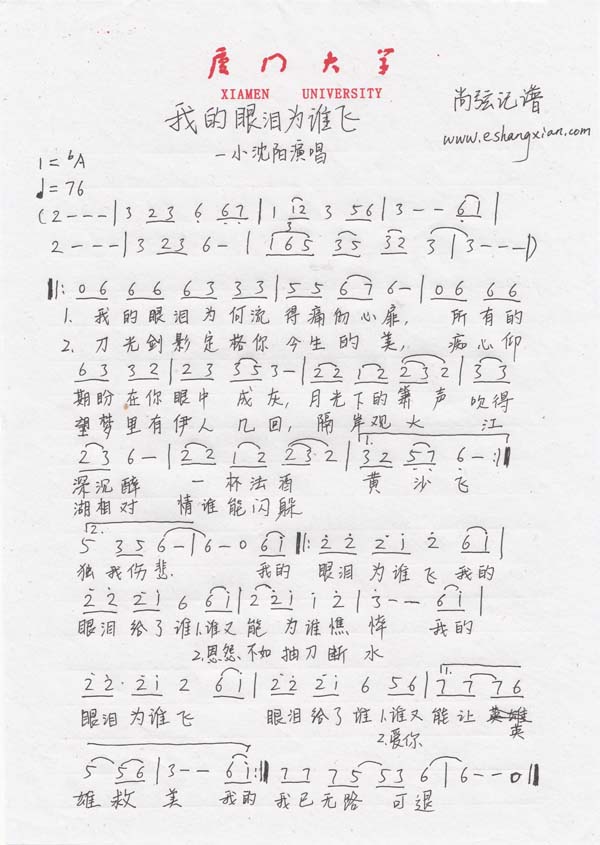 厦门大学
XIAMEN UNIVERSITY
尚弦记谱
我的眼泪为谁飞
www.eshangxian.com
—小沈阳演唱
1=ᵇA
♩=76
(2 - - - | 3 23 6 67 | 1 12 3 56 | 3 - - 61 |
2 - - - | 3 23 6 - | 165 35 32 3 | 3 - - - |)
3
‖: 06 66 63 33 | 55 676 - | 06 66
1. 我的眼泪为何流得痛彻心扉, 所有的
2. 刀光剑影定格你今生的美, 痴心仰
63 32 | 23 353 - | 22 12 232 | 33
期盼在你眼中成灰, 月光下的箫声吹得
望梦里有伊人几回, 隔岸观火 江
1.
23 6 - | 22 12 232 | 32 576 - :‖
深沉醉 一杯法酒 黄沙飞
湖相对 情谁能闪躲
2.
5 356 - | 6 - 0 61 ‖: 22 21 2 61 |
独我伤悲 我的 眼泪为谁飞 我的
22 21 6 61 | 221 12 | 3 - - 61 |
眼泪给了谁 1.谁又能为谁憔悴 我的
2.恩怨不如抽刀断水
1.
22· 21 2 61 | 22 21 6 56 | 77 76
眼泪为谁飞 眼泪给了谁 1.谁又能让英
2.爱你
5 56 | 3 - - 61 :‖ 77 75 53 6 | 6 - - 0 ‖
雄救美 我的 我已无路可退